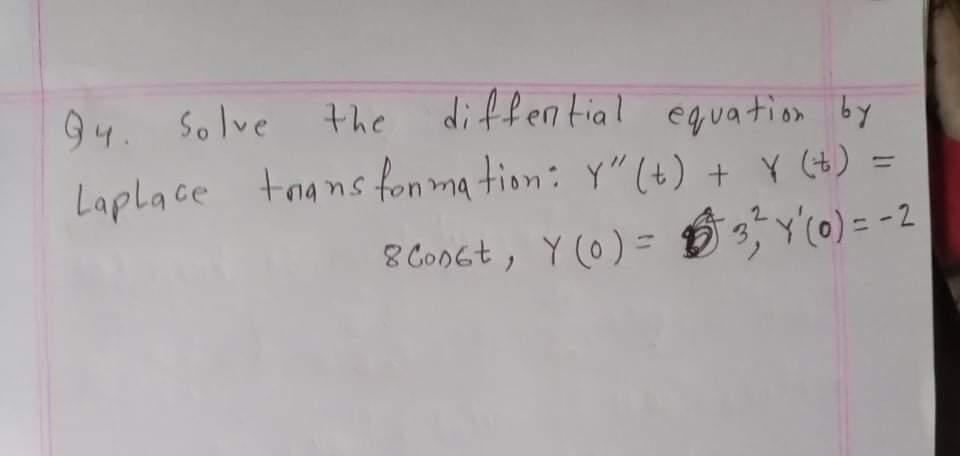 Q4. Solve the differential equation by
Laplace transformation: Y"(t) + Y (t) =
8 Cos6t, Y (0) = 3,² Y'(0) = -2